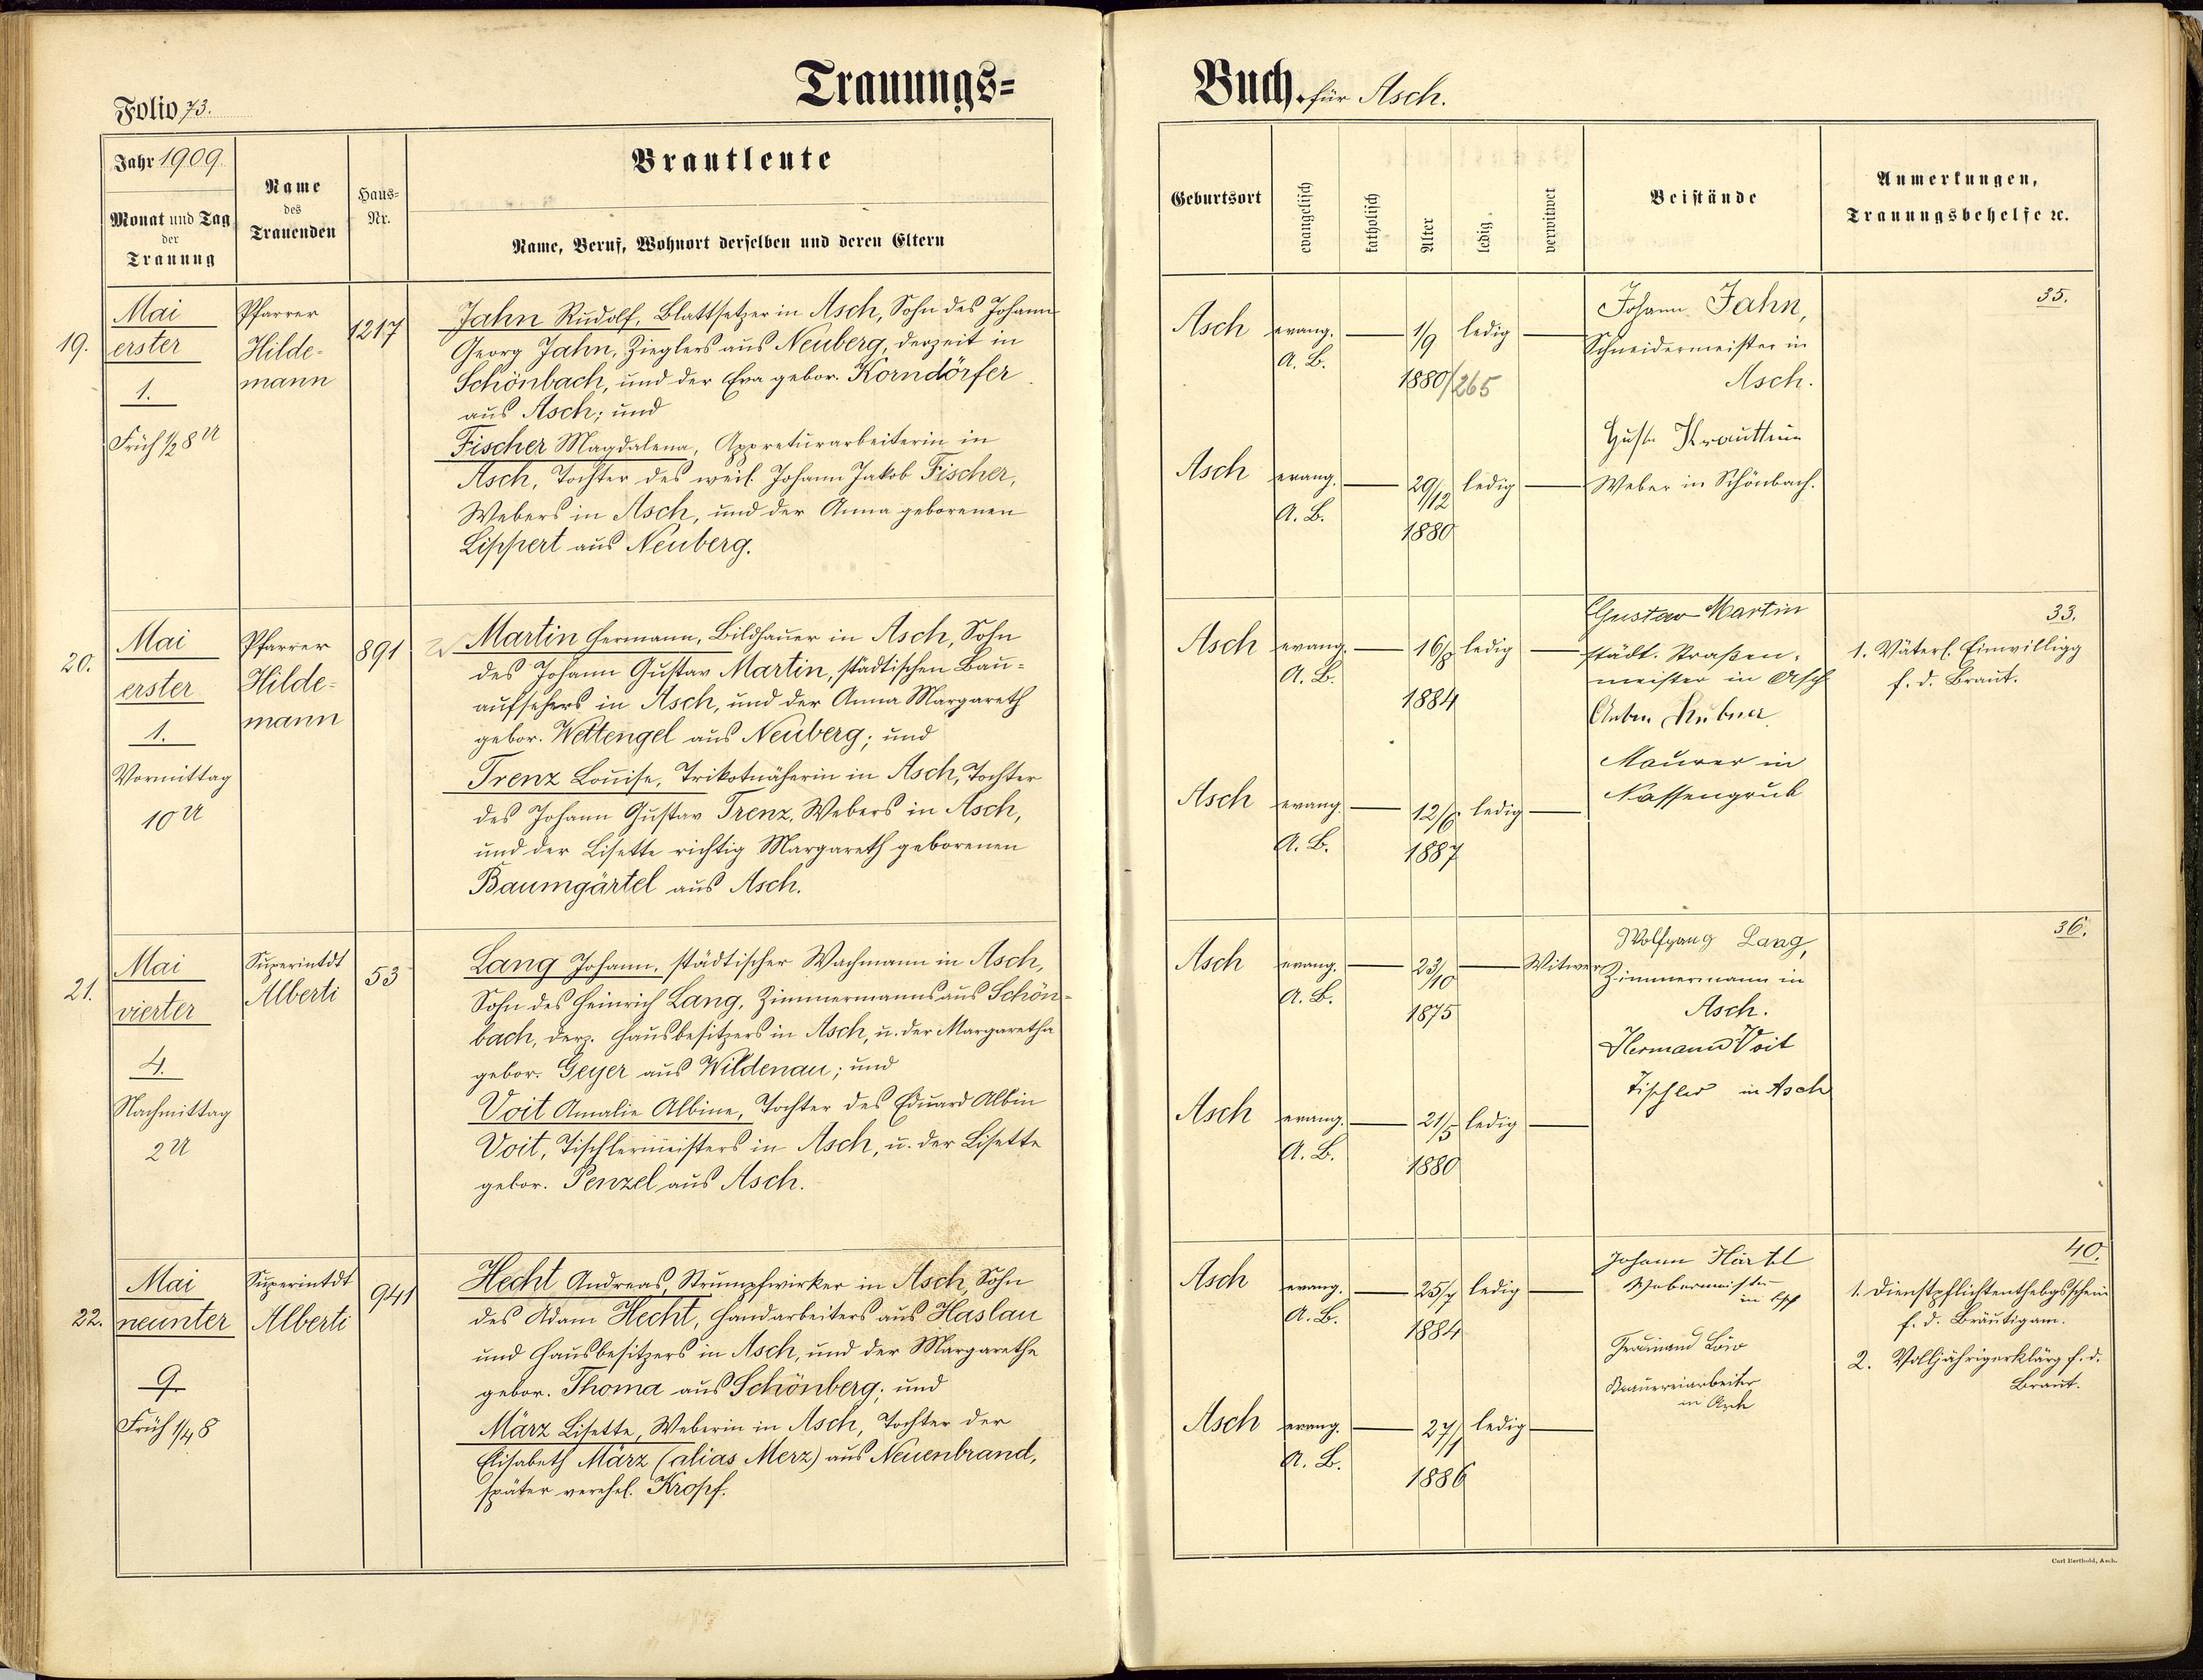 Trauungs=
Folio 73.
Jahr 1909.
Monat und Tag
der
Trauung
Name
des
Trauenden
Haus=
Nr.
Brautleute
Name, Beruf, Wohnort derselben und deren Eltern
19.
Mai
erster
1.
Früh ½ 8 U
Pfarrer
Hilde-
mann
1217
Jahn Rudolf, Blattsetzer in Asch, Sohn des Johann
Georg Jahn, Zieglers aus Neuberg, derzeit in
Schönbach, und der Eva gebor. Korndörfer
aus Asch; und
Fischer Magdalena, Appreturarbeiterin in
Asch, Tochter des weil. Johann Jakob Fischer,
Webers in Asch, und der Anna geborenen
Lippert aus Neuberg.
20.
Mai
erster
1.
Vormittag
10 U
Pfarrer
Hilde-
mann
891
Martin Hermann, Bildhauer in Asch, Sohn
des Johann Gustav Martin, städtischen Bau-
aufsehers in Asch, und der Anna Margareth
gebor. Wettengel aus Neuberg; und
Trenz Louise, Trikotnäherin in Asch, Tochter
des Johann Gustav Trenz, Webers in Asch,
und der Lisette richtig Margareth geborenen
Baumgärtel aus Asch.
21.
Mai
vierter
4.
Nachmittag
2 U
Superintdt
Alberti
53
Lang Johann, städtischer Wachmann in Asch,
Sohn des Heinrich Lang, Zimmermanns aus Schön-
bach, derz. Hausbesitzers in Asch, u. der Margaretha
gebor. Geyer aus Wildenau; und
Voit Amalie Albine, Tochter des Eduard Albin
Voit, Tischlermeisters in Asch, u. der Lisette
gebor. Penzel aus Asch.
22.
Mai
neunter
9.
Früh ¼ 8
Superintdt
Alberti
941
Hecht Andreas, Strumpfwirker in Asch, Sohn
des Adam Hecht, Handarbeiters aus Haslau
und Hausbesitzers in Asch, und der Margarethe
gebor. Thoma aus Schönberg; und
März Lisette, Weberin in Asch, Tochter der
Elisabeth März (alias Merz) aus Neuenbrand,
später verehel. Kropf.
Buch. für Asch.
Geburtsort
evangelisch
katholisch
Alter
ledig
verwitwet
Beistände
Anmerkungen,
Trauungsbehelfe ꝛc.
Asch evang. 1/9 ledig
A. B.
1880/265
Johann Jahn,
Schneidermeister in
Asch.
35.
Asch evang. 29/12 ledig
A. B.
1880
Weber in Schönbach.
Asch evang. 16/8 ledig
A. B.
1884
Gustav Martin
städt. Straßen-
meister in Asch
33.
1. Väterl. Einwilligg
f. d. Braut.
Asch evang. 12/6 ledig
A. B.
1887
Anton Hubner
Maurer in
Nassengrub
Asch evang. 23/10 Witwer
A. B.
1875
Wolfgang Lang,
Zimmermann in
Asch.
36.
Asch evang. 21/5 ledig
A. B.
1880
Hermann Voit
Tischler in Asch
Asch evang. 25/7 ledig
A. B.
1884
Johann Härtl
Webermeister
in Asch
40.
1. Dienstpflichtenthebgsschein
f. d. Bräutigam.
2. Volljährigerklärg f. d.
Braut.
Asch evang. 27/1 ledig
A. B.
1886
Ferdinand Löw
Brauereiarbeiter
in Asch
Carl Berthold, Asch.